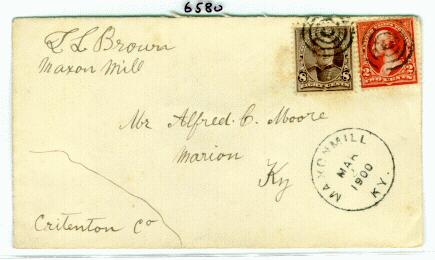 6580
L L Brown
Maxon Mill
8 8
EIGHT CENTS
2 2
TWO CENTS
Mr Alfred. C. Moore
Marion
Ky
MAXONMILL
MAR
1900
KY.
Critenton Co